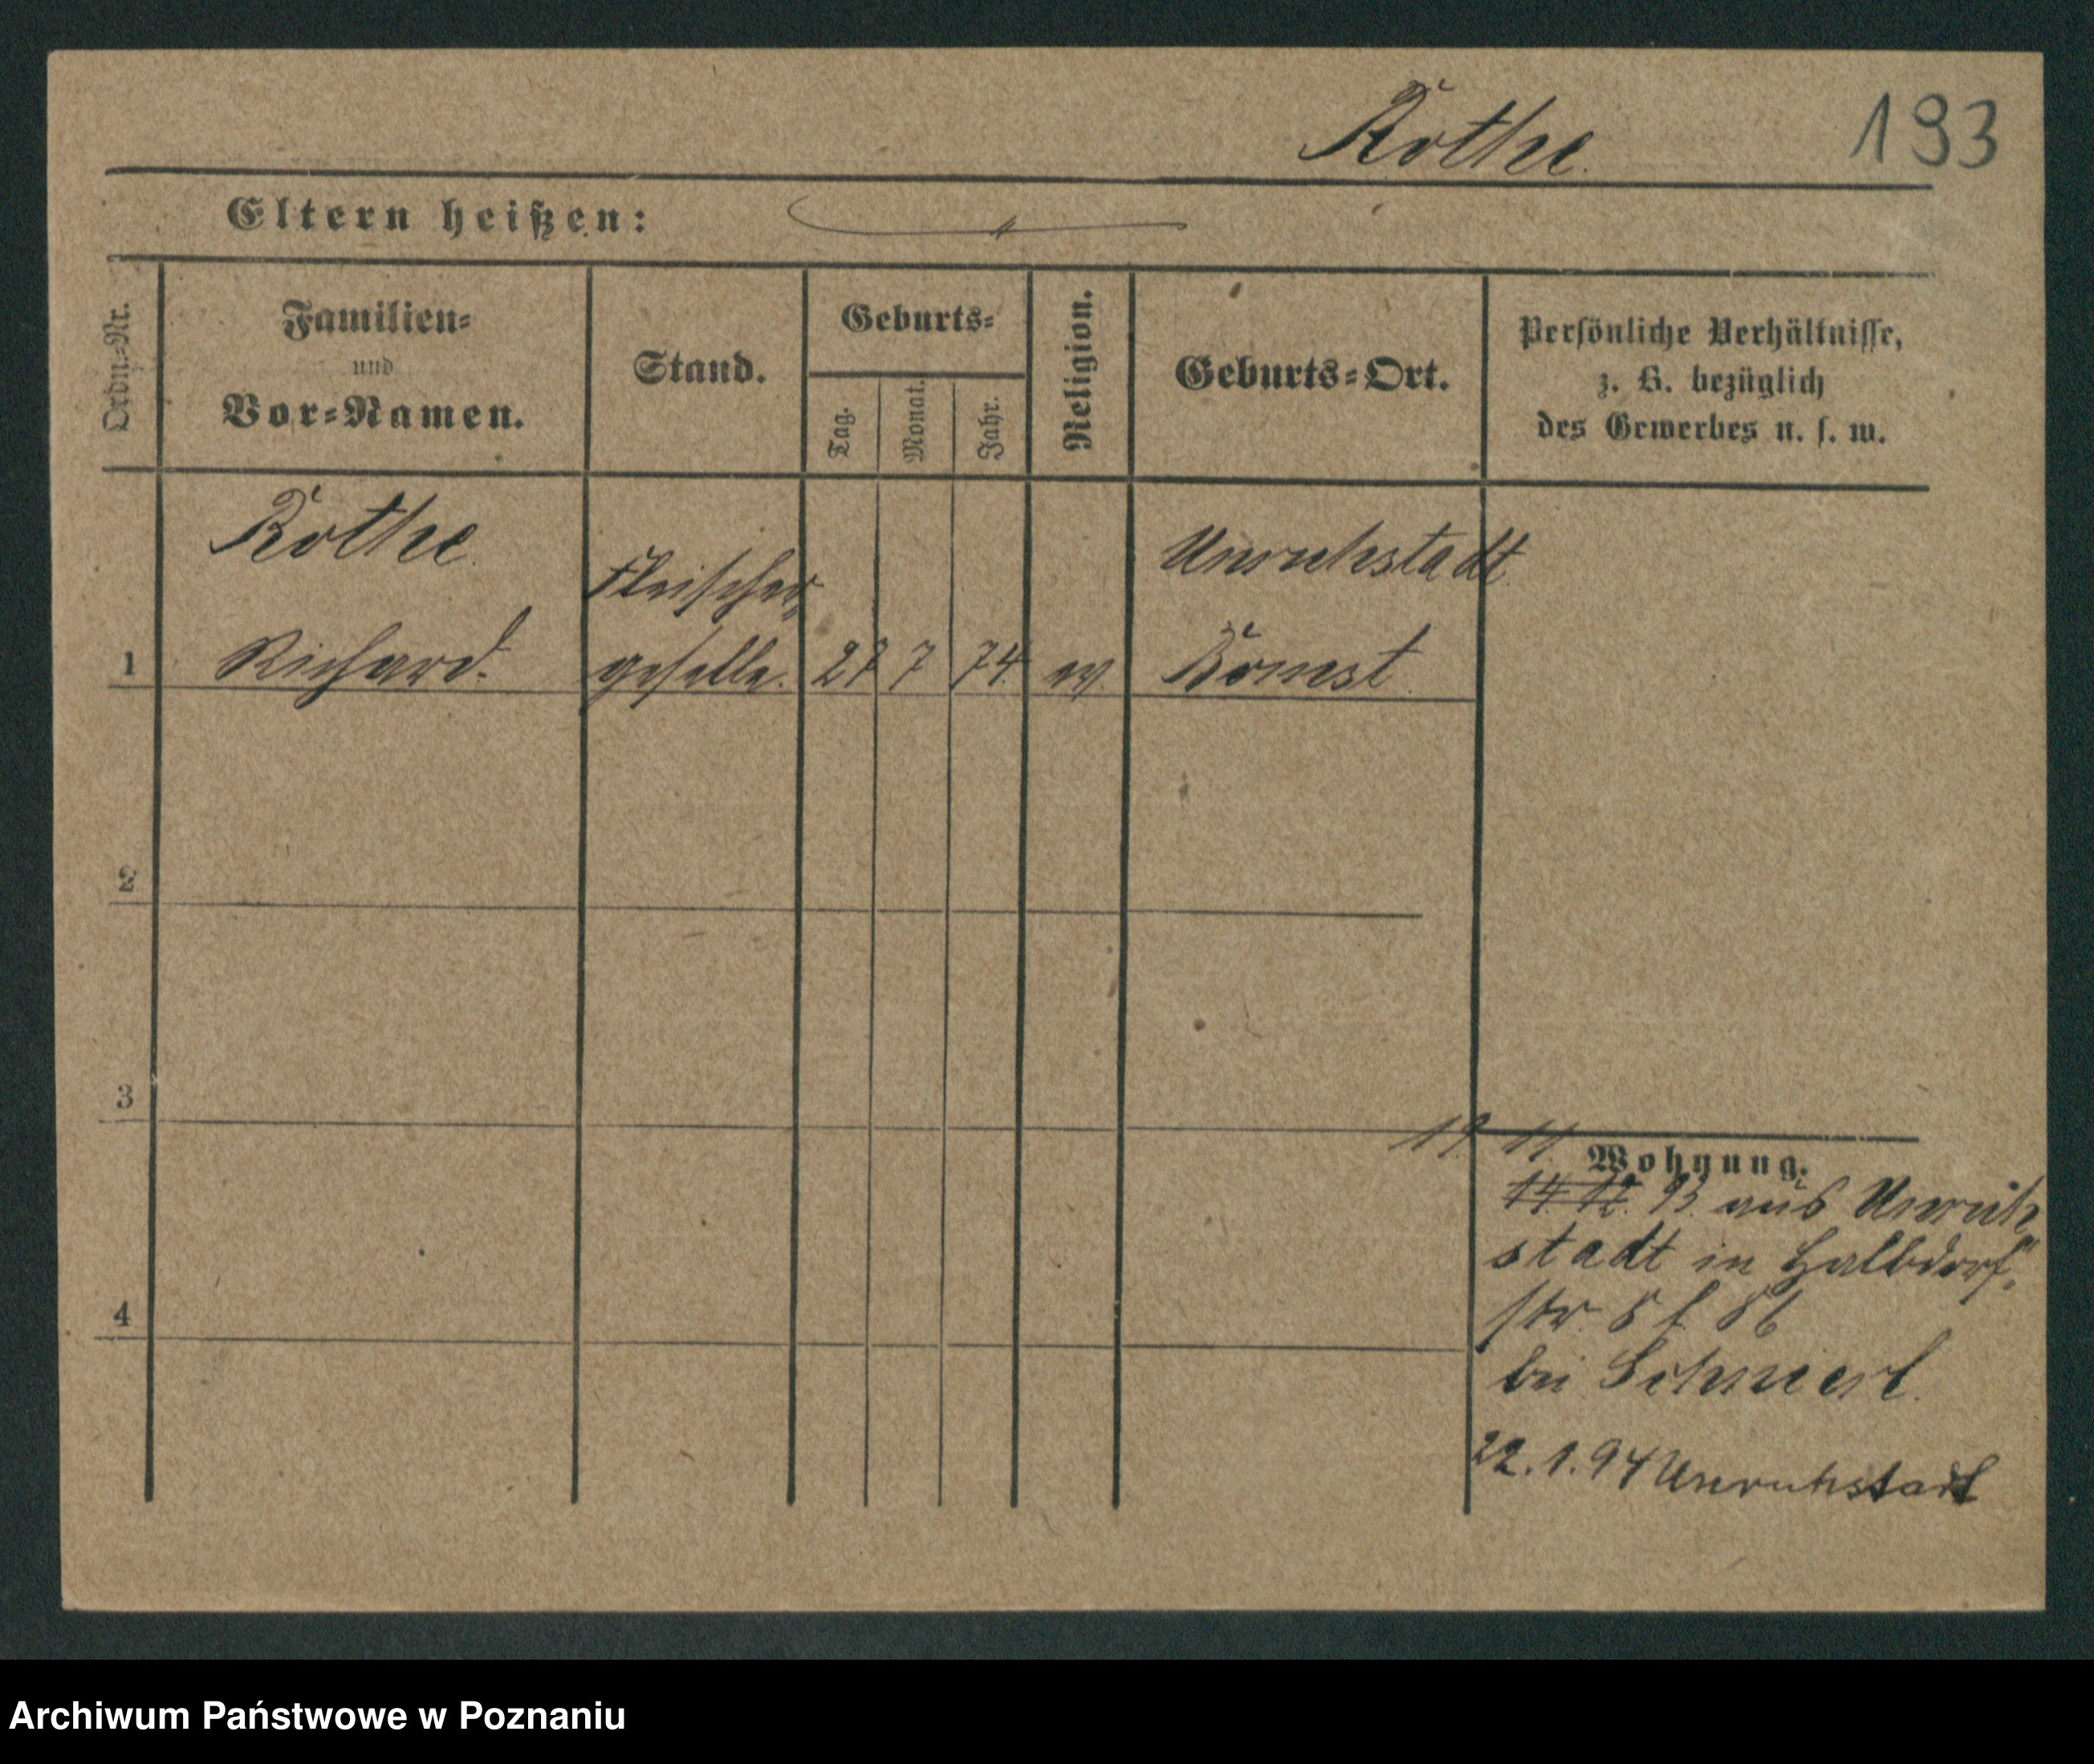 Rothe.
193
Eltern heißen:
Ordn.-Nr.
Familien-
und
Vor-Namen.
Stand.
Geburts-
Tag.
Monat.
Jahr.
Religion.
Geburts-Ort.
Persönliche Verhältnisse,
z. B. bezüglich
des Gewerbes u. s. w.
Rothe
Fleischer
Unruhstadt
1 Richard. geselle. 27 7 74 ev. Bomst
2
3
19. 11.
Wohnung.
14 12. 93. aus Unruh
stadt in Halbdorf
str.
bei
4
22.1.94 Unruhstadt
Archiwum Państwowe w Poznaniu